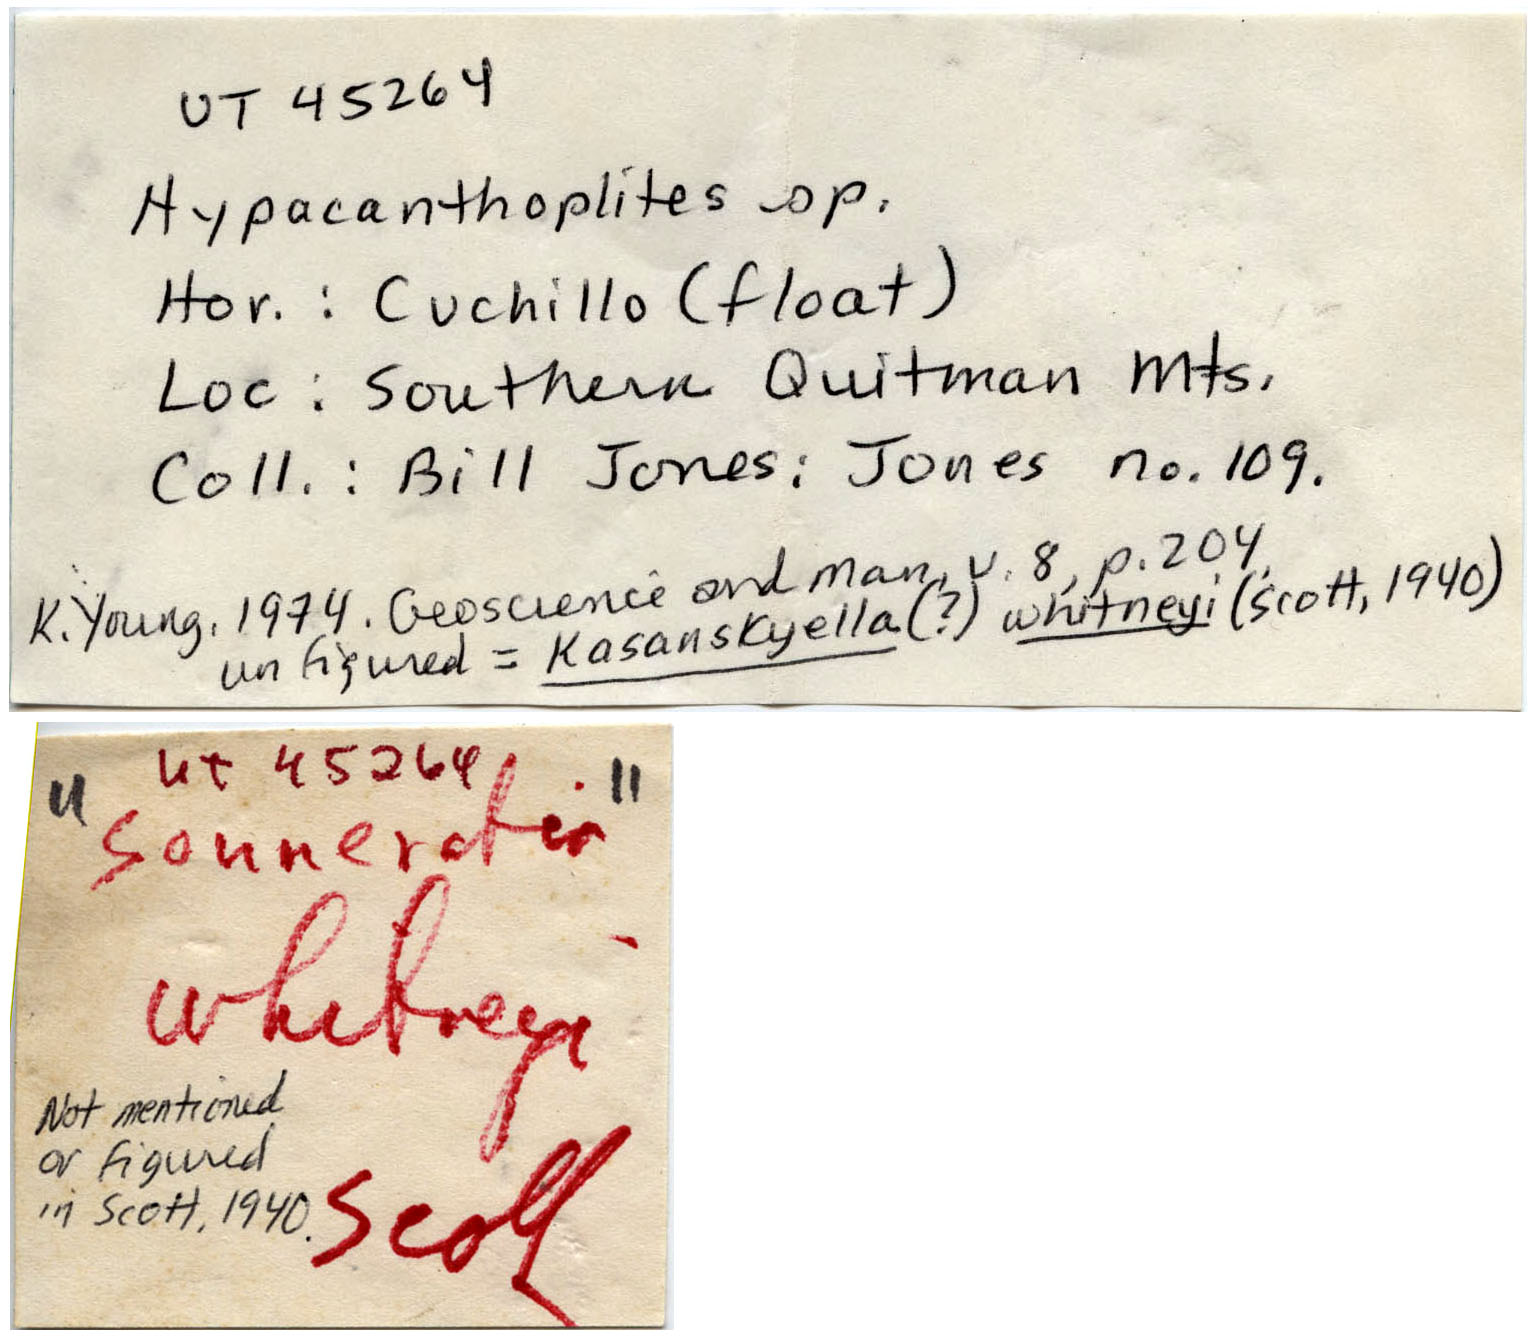 UT 45264
Hypacanthoplites sp.
Hor. : Cuchillo (float)
Loc : Southern Quitman Mts.
Coll. : Bill Jones; Jones no. 109.
K. Young, 1974. Geoscience and Man, v. 8, p. 204,
unfigured = Kasanskyella (?) whitneyi (Scott, 1940)
UT 45264
"Sonneratia"
whitneyi
Not mentioned
or figured
in Scott, 1940.
Scott